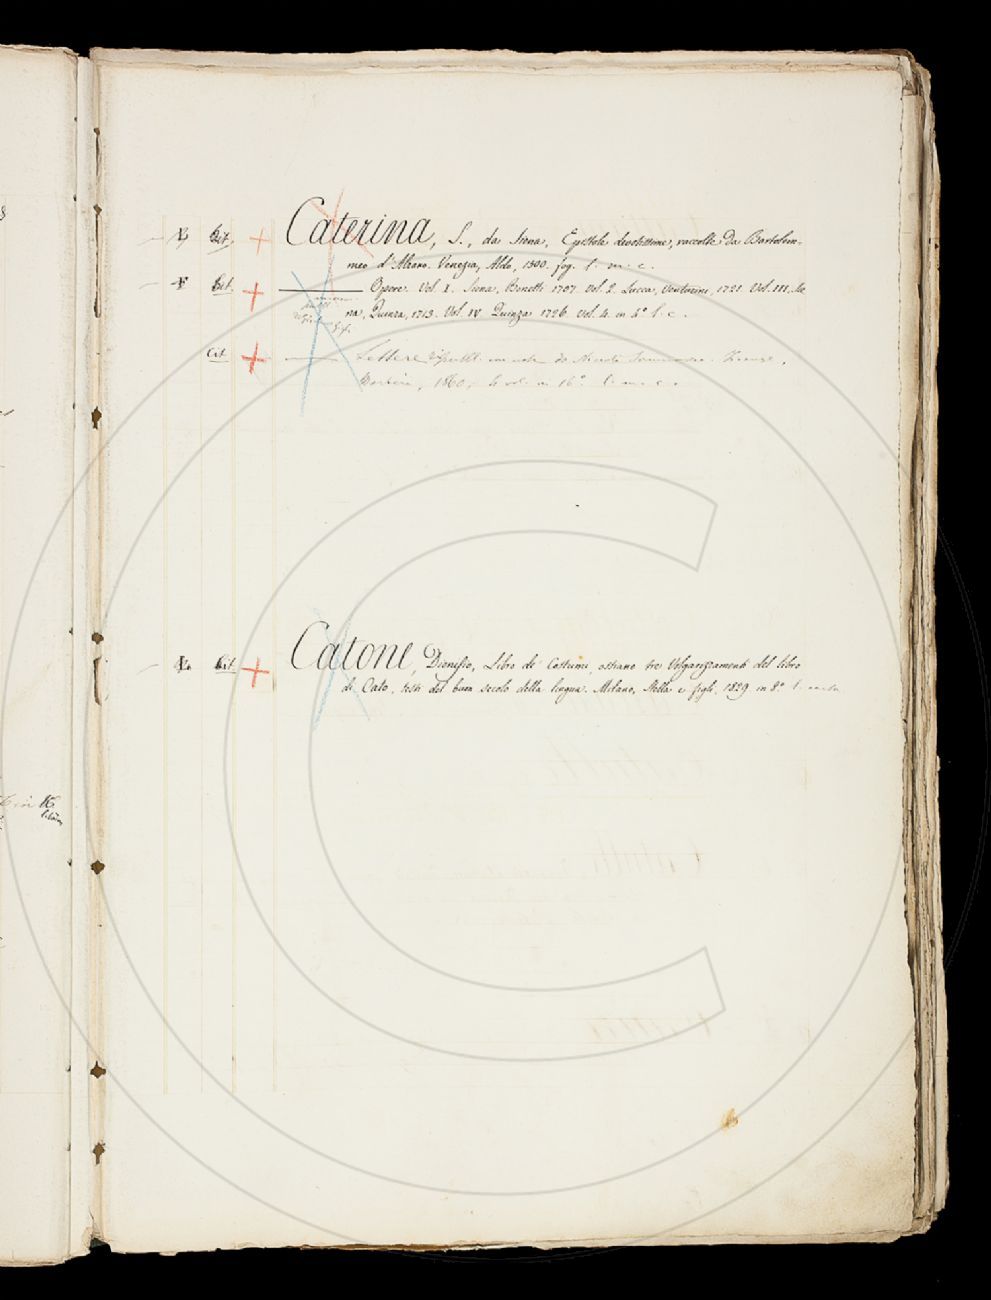 L Cit. Caterina, S., da Siena, Epistole devotissime, raccolte da Bartolom-
meo d'Alzano. Venezia, Aldo, 1500. fog. l. m. c.
F Cit. Opere. Vol. I. Siena, Bonetti 1707. Vol. 2. Lucca, Venturini, 1721. Vol. III. Sie
na, Quinza, 1713. Vol. IV Quinza 1726. Vol. 4. in 4° l. c.
Cit. Lettere con note di Niccolò Tommaseo. Firenze,
Barbèra, 1860, 4 vol. in 16° l. m. c.
L Cit. Catone, Dionisio, Libro de' Costumi, ossiano tre Volgarizzamenti del libro
di Cato, testi del buon secolo della lingua. Milano, Stella e figli, 1829 in 8°